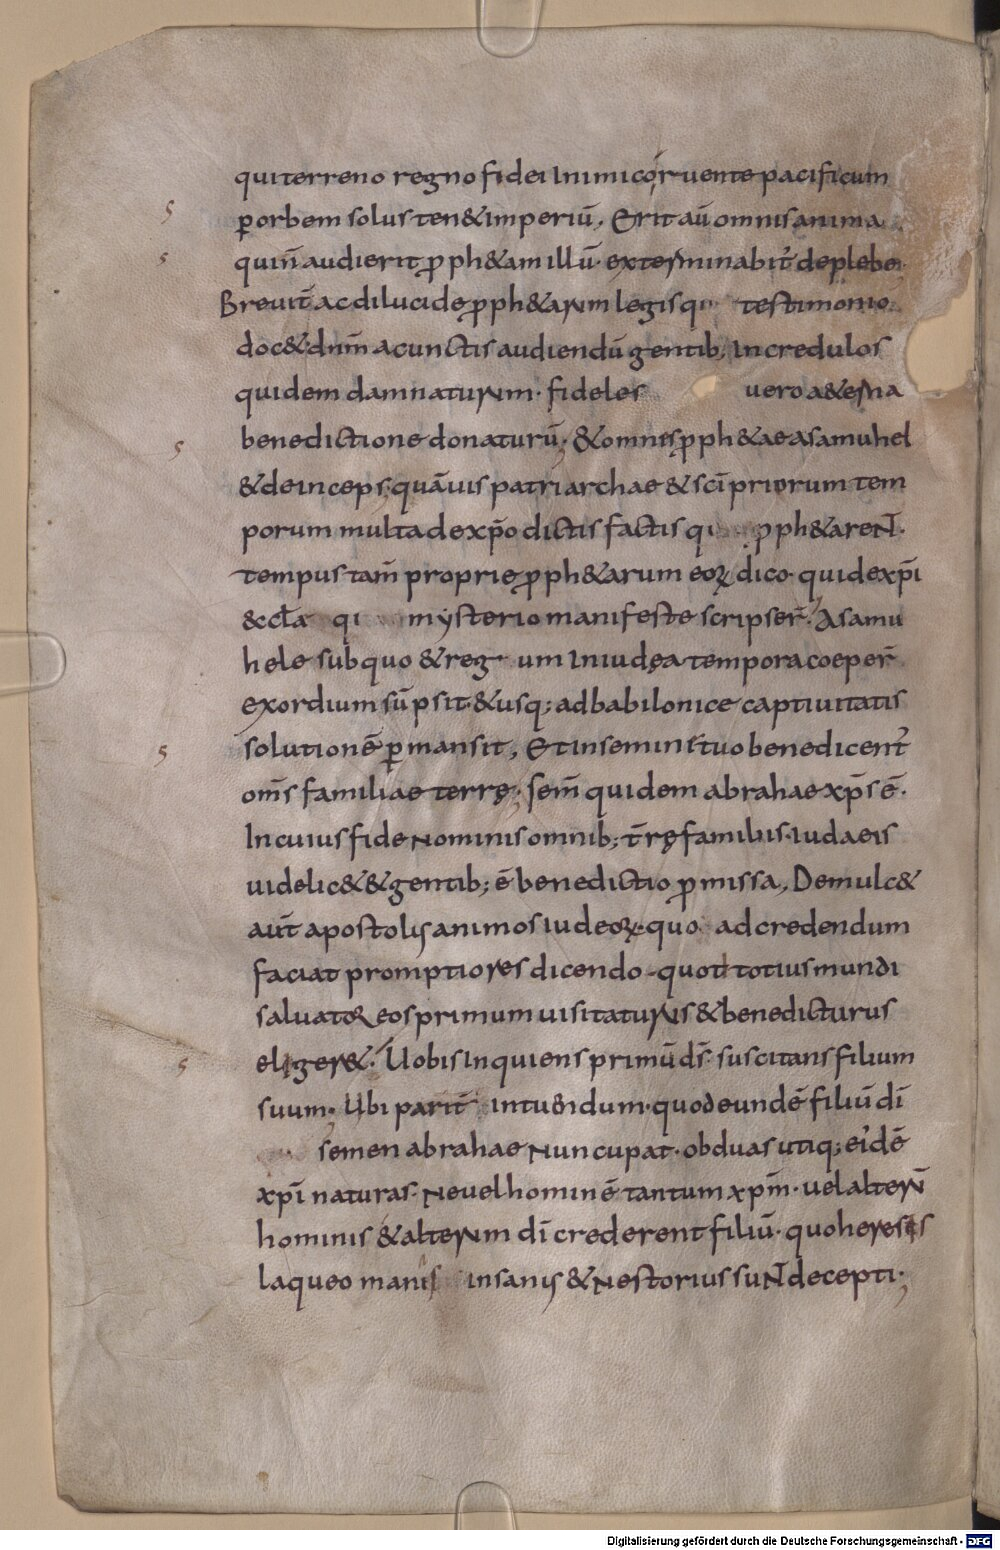 qui terreno regno fidei inimicor uente pacificum
ꝑ orbem solus ten& imperiū, Erit aū omnis anima
qui n̄ audierit ꝓph&am illū exterminabit̄ de plebe.
Breuit̄ ac dilucide ꝓph&arum legis qi testimonio
doc& dnm̄ a cunctis audiendū gentib; incredulos
quidem damnaturum· fideles uero a&erna
benedictione donaturū· & omnis ꝓph&ae a samuhel
& deinceps· quāuis patriarchae & sci priorum tem
porum multa de xp̄o dictis factis qi ꝓph&areN̄·
tempus tam̄ proprie ꝓph&arum eoꝝ dico· qui de xp̄i
& ecl̄a qi mysterio manifeste scripser̄· A samu
hele sub quo & reg um in iudęa tempora coeper̄
exordium sūpsit· & usq; ad babilonice captiuitatis
solutionē ꝑmansit, Et in semini tuo benedicent̄
om̄s familiae terrę· sem̄ quidem abrahae xp̄s ē·
In cuius fide nominis omnib; t̄rę familiis· iudaeis
uidelic& & gentib; ē benedictio ꝓmissa, Demulc&
aut̄ apostolis animos iudeoꝝ· quo ad credendum
faciat promptiores dicendo· quod totius mundi
saluatoꝝ eos primum uisitaturus & benedicturus
eliger&· Uobis inquiens primū ds̄ suscitans filium
suum· Ubi parit̄ intuendum· quod eundē filiū dī
semen abrahae nuncupat· ob duas utiq; eidē
xp̄i naturas· Ne uel hominē tantum xp̄m· uel alterū
hominis & alterum dī crederent filiū· quo heresis
laqueo manis insanis & nestorius suN̄ decepti·